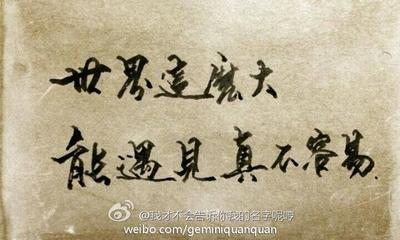 世界這麼大
能遇見真不容易.
@我才不会告诉你我的名字呢哼
weibo.com/geminiquanquan